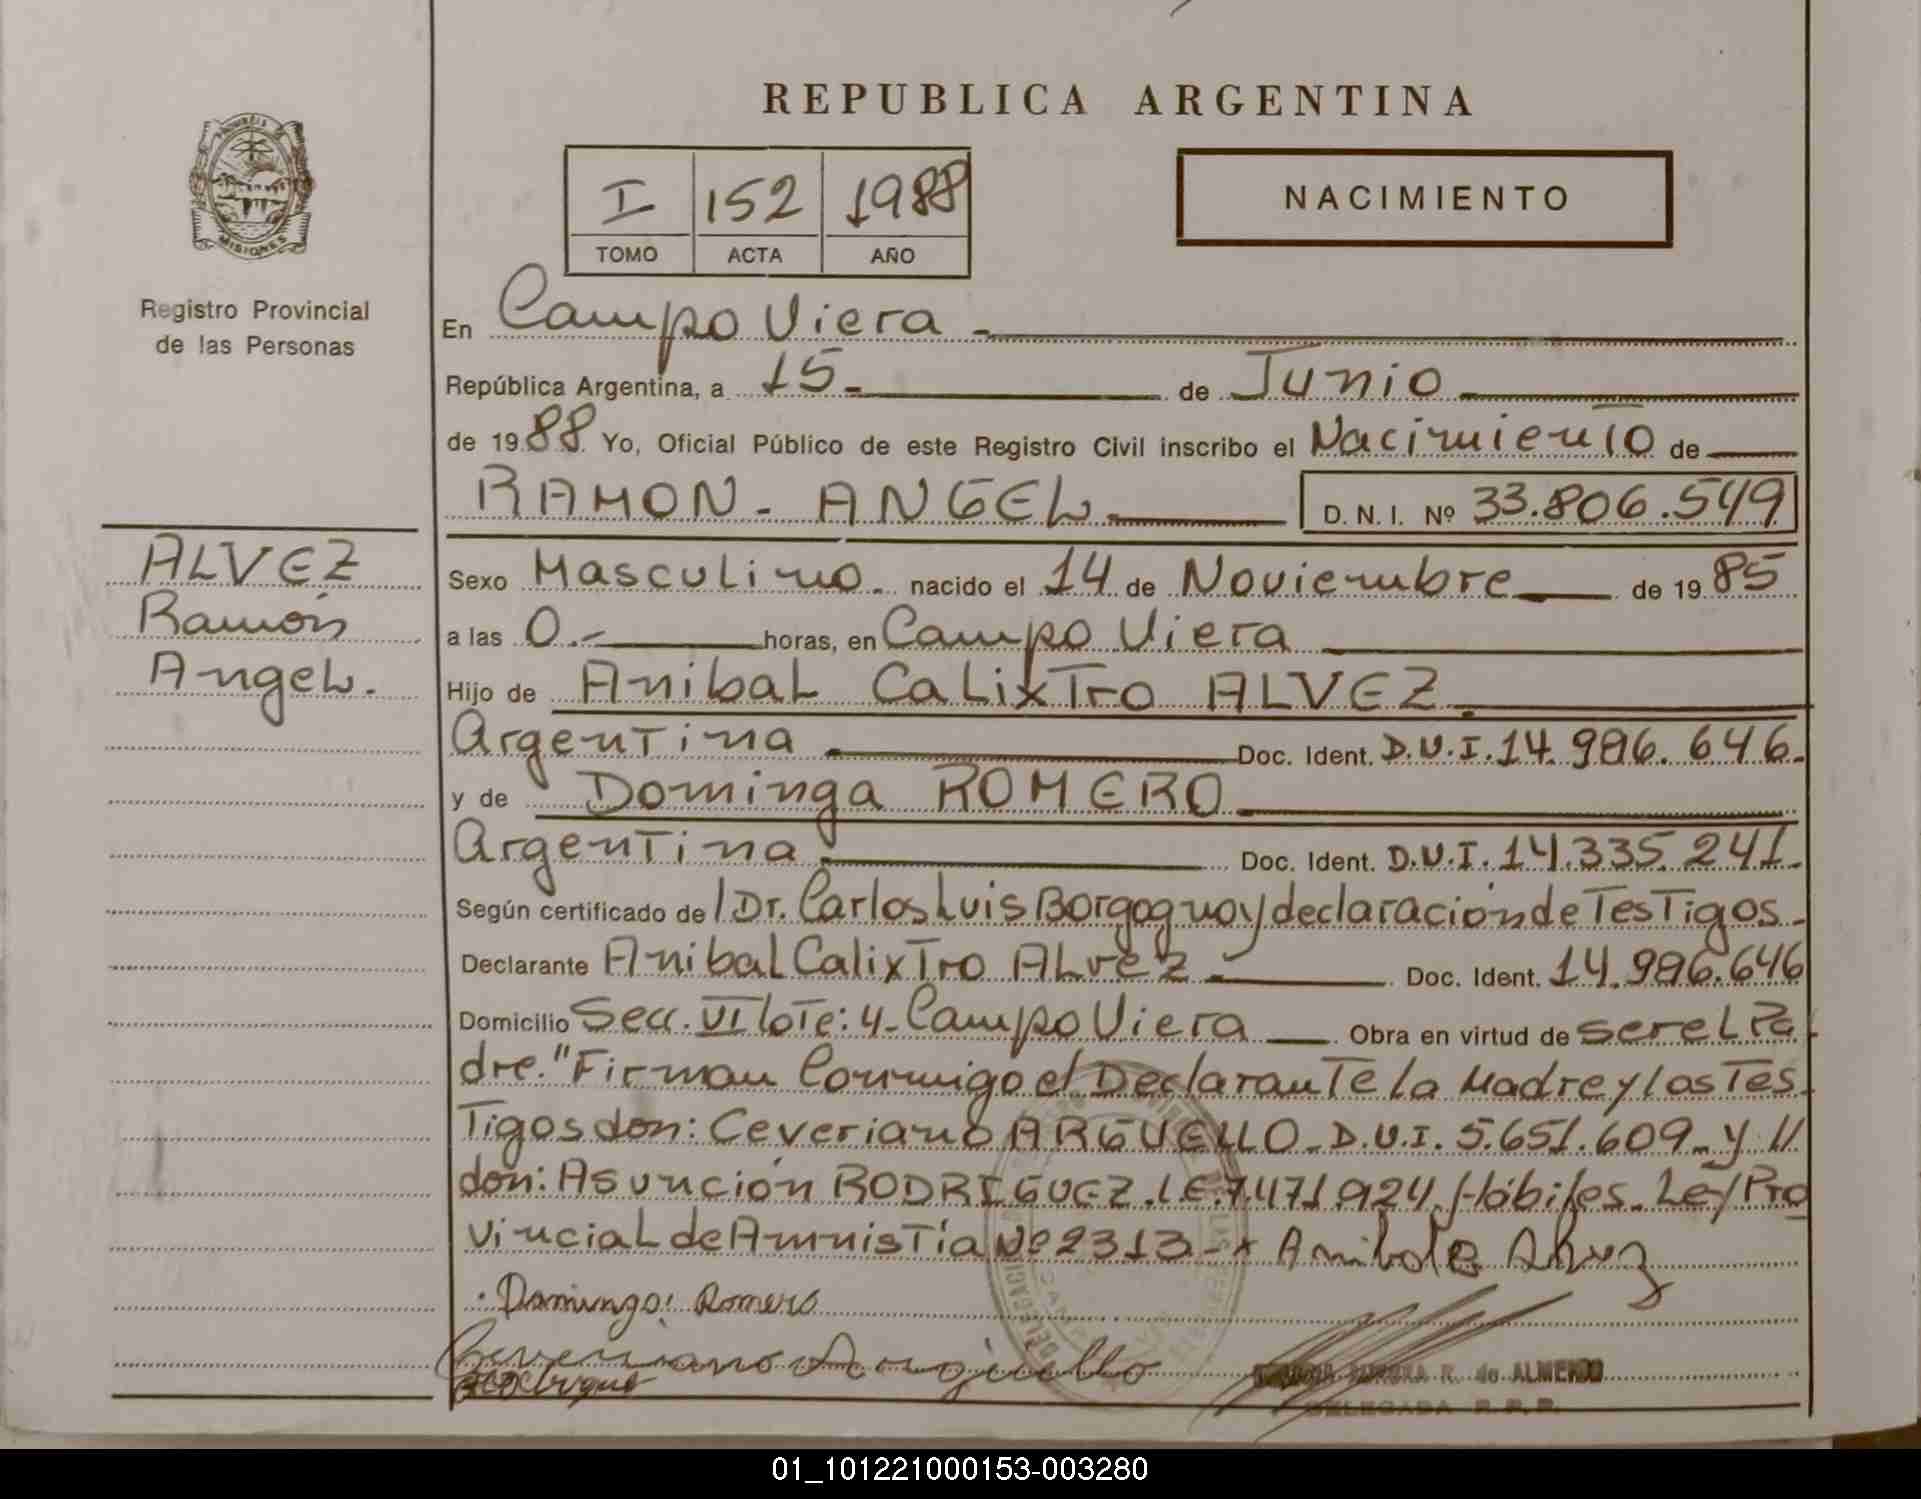 REPUBLICA ARGENTINA
PROVINCIA DE
MISIONES
Registro Provincial
de las Personas
I 152 1988
TOMO ACTA AÑO
NACIMIENTO
En Campo Viera -
República Argentina, a 15- de Junio
de 1988 Yo, Oficial Público de este Registro Civil inscribo el Nacimiento de
RAMON - ANGEL D. N. I. Nº 33.806.549
ALVEZ
Ramón
Angel.
Sexo Masculino. nacido el 14 de Noviembre de 1985
a las 0.- horas, en Campo Viera
Hijo de Anibal Calixtro ALVEZ.
Argentina Doc. Ident. D.U.I. 14.986.646.
y de Dominga ROMERO
Argentina Doc. Ident. D.U.I. 14.335.241.
Según certificado de / Dr. Carlos Luis Borgogno y declaración de Testigos.
Declarante Anibal Calixtro ALvez - Doc. Ident. 14.986.646
Domicilio Secc. VI lote: 4- Campo Viera Obra en virtud de ser el Pa
dre." Firman Conmigo el Declarante la Madre y los Tes
Tigos don: Ceveriano ARGUELLO - D.U.I. 5.651.609- y //
don: Asunción RODRIGUEZ. L.E. 7.471.924. Hábiles. Ley Pro
vincial de Amnistía Nº 2313 - x Anibal C Alvez
. Dominga Romero
Ceveriano Arguello
R. de ALMEIDO
DELEGADA R. P. P.
01_101221000153-003280